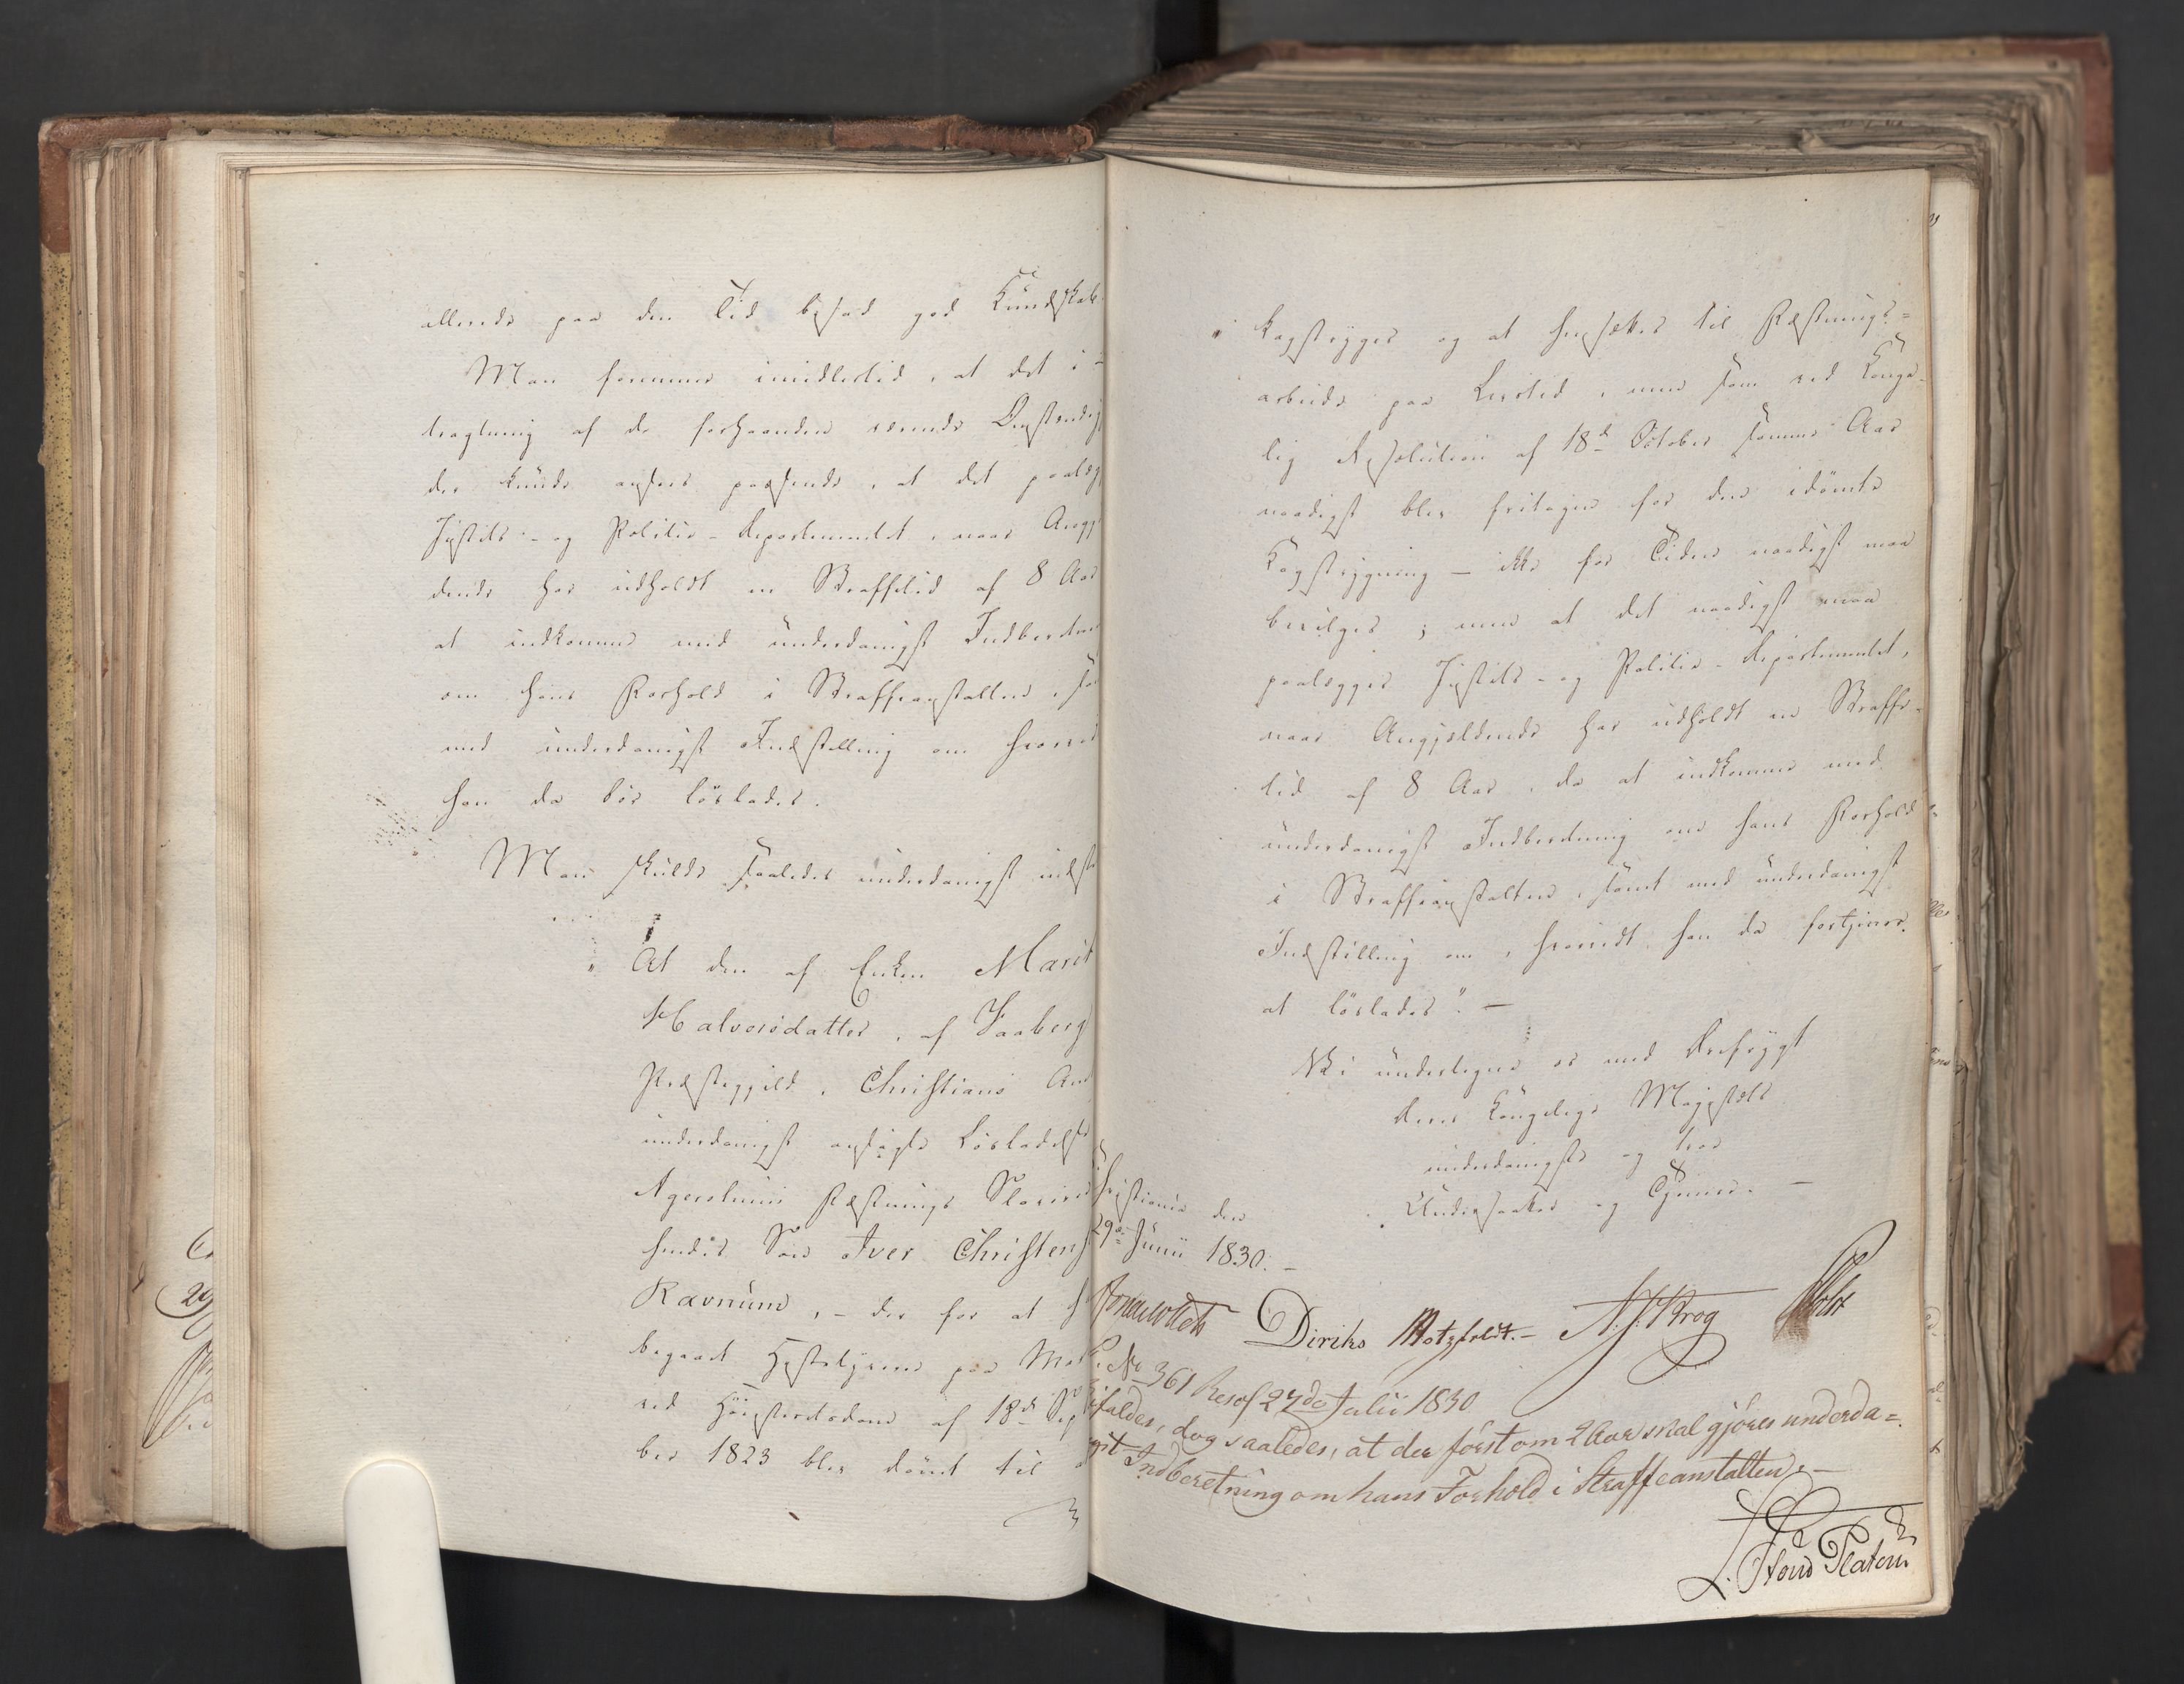 allerede paa den Tid besad god Kundskab
Man formener imidlertid, at det i
tragtning af de forhaanden værende Omstændig
der kunde ansees passende, at det paalæg
Justits- og Politie-Departementet, naar Angj
dende har udholdt en Straffetid af 8 Aar
at indkomme med underdanigst Indberetn
om hans Forhold i Straffeanstalten, sa
med underdanigst Indstilling om hvorvid
han da bør løslades.
Man skulde saaledes underdanigst indst
"At den af Enken Marit
Halvorsdatter, af Faaberg
Præstegjeld, Christians Am
underdanigst ansøgte Løsladelse
Agershuus Fæstnings Slaverie
hendes Søn Iver Christens
Ravnum, - der for at h
begaaet Hestetyverie paa Mar
ved Høiesteretsdom af 18de Sep
ber 1823 blev dømt til a
" kagstryges og at hensættes til Fæstnings=
arbeide paa Livstid, men som ved Konge-
lig Resolution af 18de October samme Aar
naadigst blev fritagen for den idømte
Kagstrygning - ikke for Tiden naadigst maa
bevilges; men at det naadigst maa
paalægges Justits- og Politie-Departementet,
naar Angjældende har udholdt en Straffe-
tid af 8 Aar, da at indkomme med
underdanigst Indberetning om hans Forhold
i Straffeanstalten, samt med underdanigst
Indstilling om, hvorvidt han da fortjener
at løslades". -
Vi undertegne os med Ærefrygt
Deres Kongelige Majestæts
underdanigste og troe
Undersaatter og Tjenere. -
Christiania den
29de Junii 1830. -
Diriks Motzfeldt. - N. J. Krog Holst
No 361 Resol 27de Julii 1830
ifaldes, dog saaledes, at der først om 2 Aar skal gjöres underda=
gst Indberetning om hans Forhold i Straffeanstalten. -
Platou